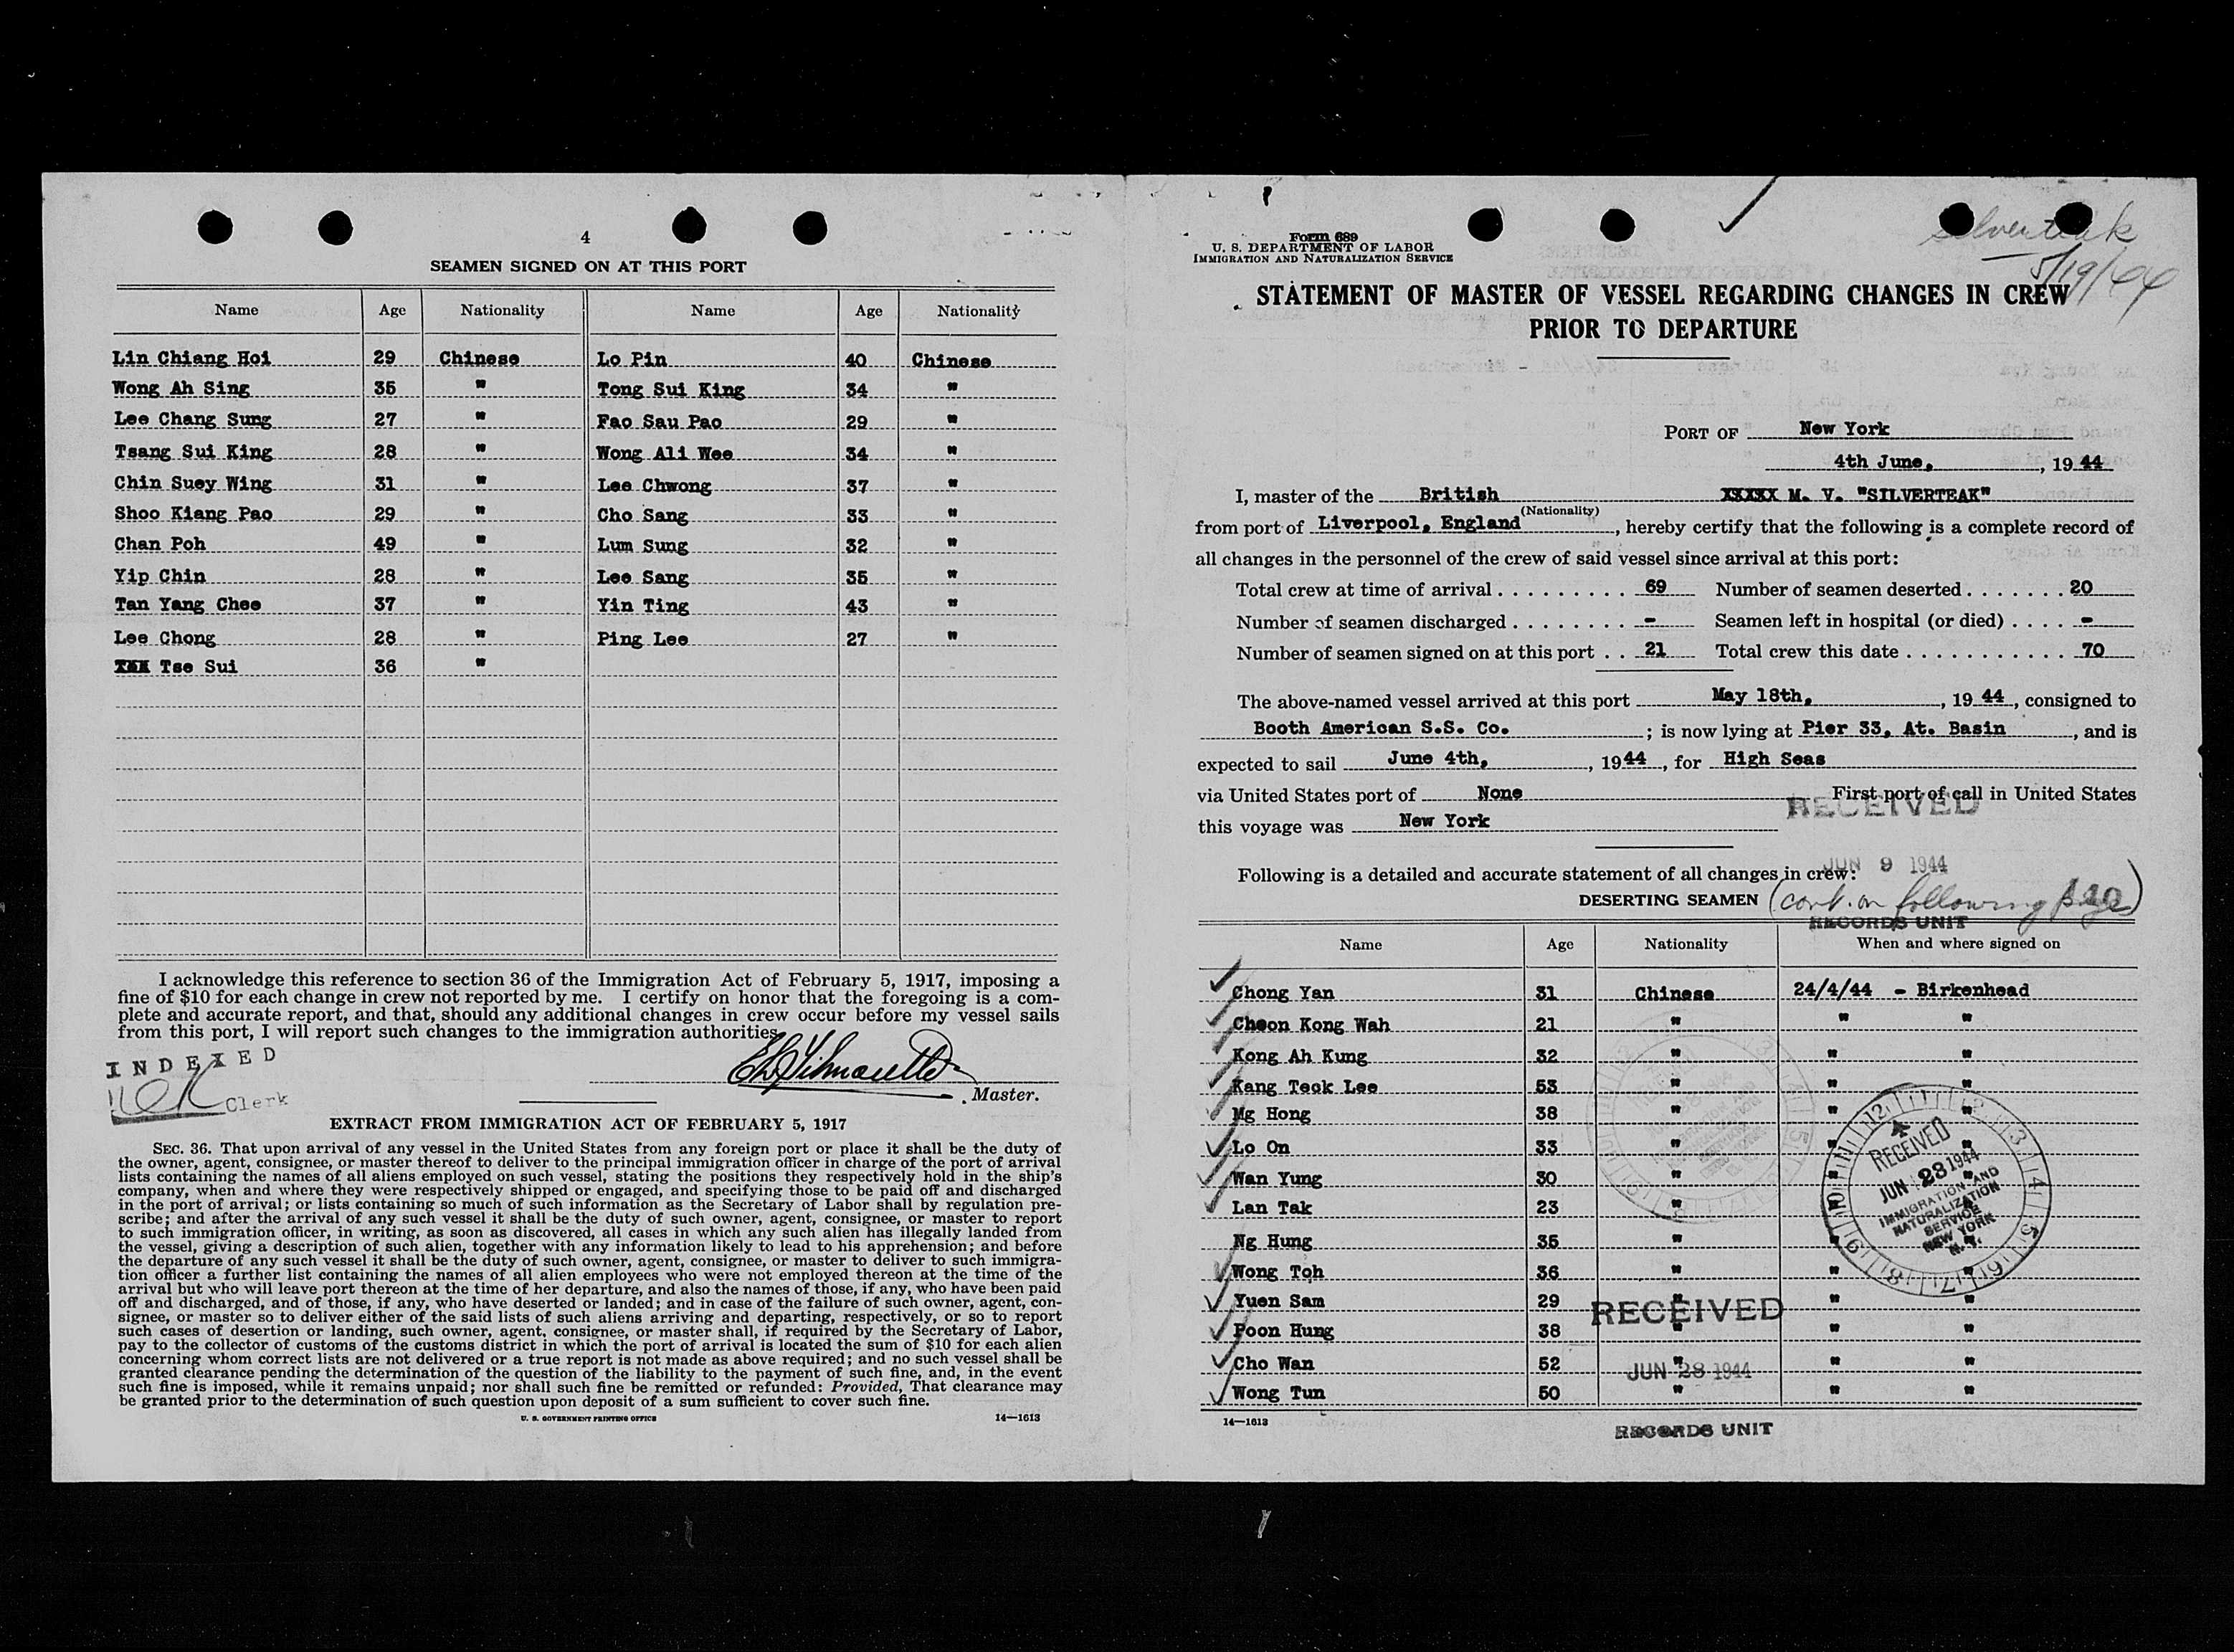 4
SEAMEN SIGNED ON AT THIS PORT
Name Age Nationality Name Age Nationality
Lin Chiang Hoi 29 Chinese Lo Pin 40 Chinese
Wong Ah Sing 35 " Tong Sui King 34 "
Lee Chang Sung 27 " Fao Sau Pao 29 "
Tsang Sui King 28 " Wong Ali Wee 34 "
Chin Suey Wing 31 " Lee Chwong 37 "
Shoo Kiang Pao 29 " Cho Sang 33 "
Chan Poh 49 " Lum Sung 32 "
Yip Chin 28 " Lee Sang 35 "
Tan Yang Chee 37 " Yin Ting 43 "
Lee Chong 28 " Ping Lee 27 "
Tse Sui 36 "
I acknowledge this reference to section 36 of the Immigration Act of February 5, 1917, imposing a
fine of $10 for each change in crew not reported by me. I certify on honor that the foregoing is a com-
plete and accurate report, and that, should any additional changes in crew occur before my vessel sails
from this port, I will report such changes to the immigration authorities.
INDEXED
Clerk
Master.
EXTRACT FROM IMMIGRATION ACT OF FEBRUARY 5, 1917
SEC. 36. That upon arrival of any vessel in the United States from any foreign port or place it shall be the duty of
the owner, agent, consignee, or master thereof to deliver to the principal immigration officer in charge of the port of arrival
lists containing the names of all aliens employed on such vessel, stating the positions they respectively hold in the ship's
company, when and where they were respectively shipped or engaged, and specifying those to be paid off and discharged
in the port of arrival; or lists containing so much of such information as the Secretary of Labor shall by regulation pre-
scribe; and after the arrival of any such vessel it shall be the duty of such owner, agent, consignee, or master to report
to such immigration officer, in writing, as soon as discovered, all cases in which any such alien has illegally landed from
the vessel, giving a description of such alien, together with any information likely to lead to his apprehension; and before
the departure of any such vessel it shall be the duty of such owner, agent, consignee, or master to deliver to such immigra-
tion officer a further list containing the names of all alien employees who were not employed thereon at the time of the
arrival but who will leave port thereon at the time of her departure, and also the names of those, if any, who have been paid
off and discharged, and of those, if any, who have deserted or landed; and in case of the failure of such owner, agent, con-
signee, or master so to deliver either of the said lists of such aliens arriving and departing, respectively, or so to report
such cases of desertion or landing, such owner, agent, consignee, or master shall, if required by the Secretary of Labor,
pay to the collector of customs of the customs district in which the port of arrival is located the sum of $10 for each alien
concerning whom correct lists are not delivered or a true report is not made as above required; and no such vessel shall be
granted clearance pending the determination of the question of the liability to the payment of such fine, and, in the event
such fine is imposed, while it remains unpaid; nor shall such fine be remitted or refunded: Provided, That clearance may
be granted prior to the determination of such question upon deposit of a sum sufficient to cover such fine.
U. S. GOVERNMENT PRINTING OFFICE 14—1613
Form 689
U. S. DEPARTMENT OF LABOR
IMMIGRATION AND NATURALIZATION SERVICE
Silverteak
5/19/44
STATEMENT OF MASTER OF VESSEL REGARDING CHANGES IN CREW
PRIOR TO DEPARTURE
PORT OF New York
4th June, , 19 44
I, master of the British XXXXX M. V. "SILVERTEAK"
(Nationality)
from port of Liverpool, England , hereby certify that the following is a complete record of
all changes in the personnel of the crew of said vessel since arrival at this port:
Total crew at time of arrival . . . . . . . . . 69 Number of seamen deserted . . . . . . . 20
Number of seamen discharged . . . . . . . . - Seamen left in hospital (or died) . . . . -
Number of seamen signed on at this port . . 21 Total crew this date . . . . . . . . . . . 70
The above-named vessel arrived at this port May 18th, , 19 44 , consigned to
Booth American S.S. Co. ; is now lying at Pier 33, At. Basin , and is
expected to sail June 4th, , 1944 , for High Seas
via United States port of None First port of call in United States
this voyage was New York
RECEIVED
JUN 9 1944
RECORDS UNIT
Following is a detailed and accurate statement of all changes in crew:
DESERTING SEAMEN (cont. on following page)
Name Age Nationality When and where signed on
Chong Yan 31 Chinese 24/4/44 - Birkenhead
Cheon Kong Wah 21 " " "
Kong Ah Kung 32 " " "
Kang Teck Lee 53 " " "
Mg Hong 38 " " "
Lo On 33 " " "
Wan Yung 30 " " "
Lan Tak 23 " " "
Ng Hung 35 " " "
Wong Toh 36 " " "
Yuen Sam 29 " " "
Poon Hung 38 " " "
Cho Wan 52 " " "
Wong Tun 50 " " "
RECEIVED
JUN 28 1944
IMMIGRATION AND
NATURALIZATION
SERVICE
NEW YORK
N. Y.
RECEIVED
JUN 28 1944
RECORDS UNIT
14—1613